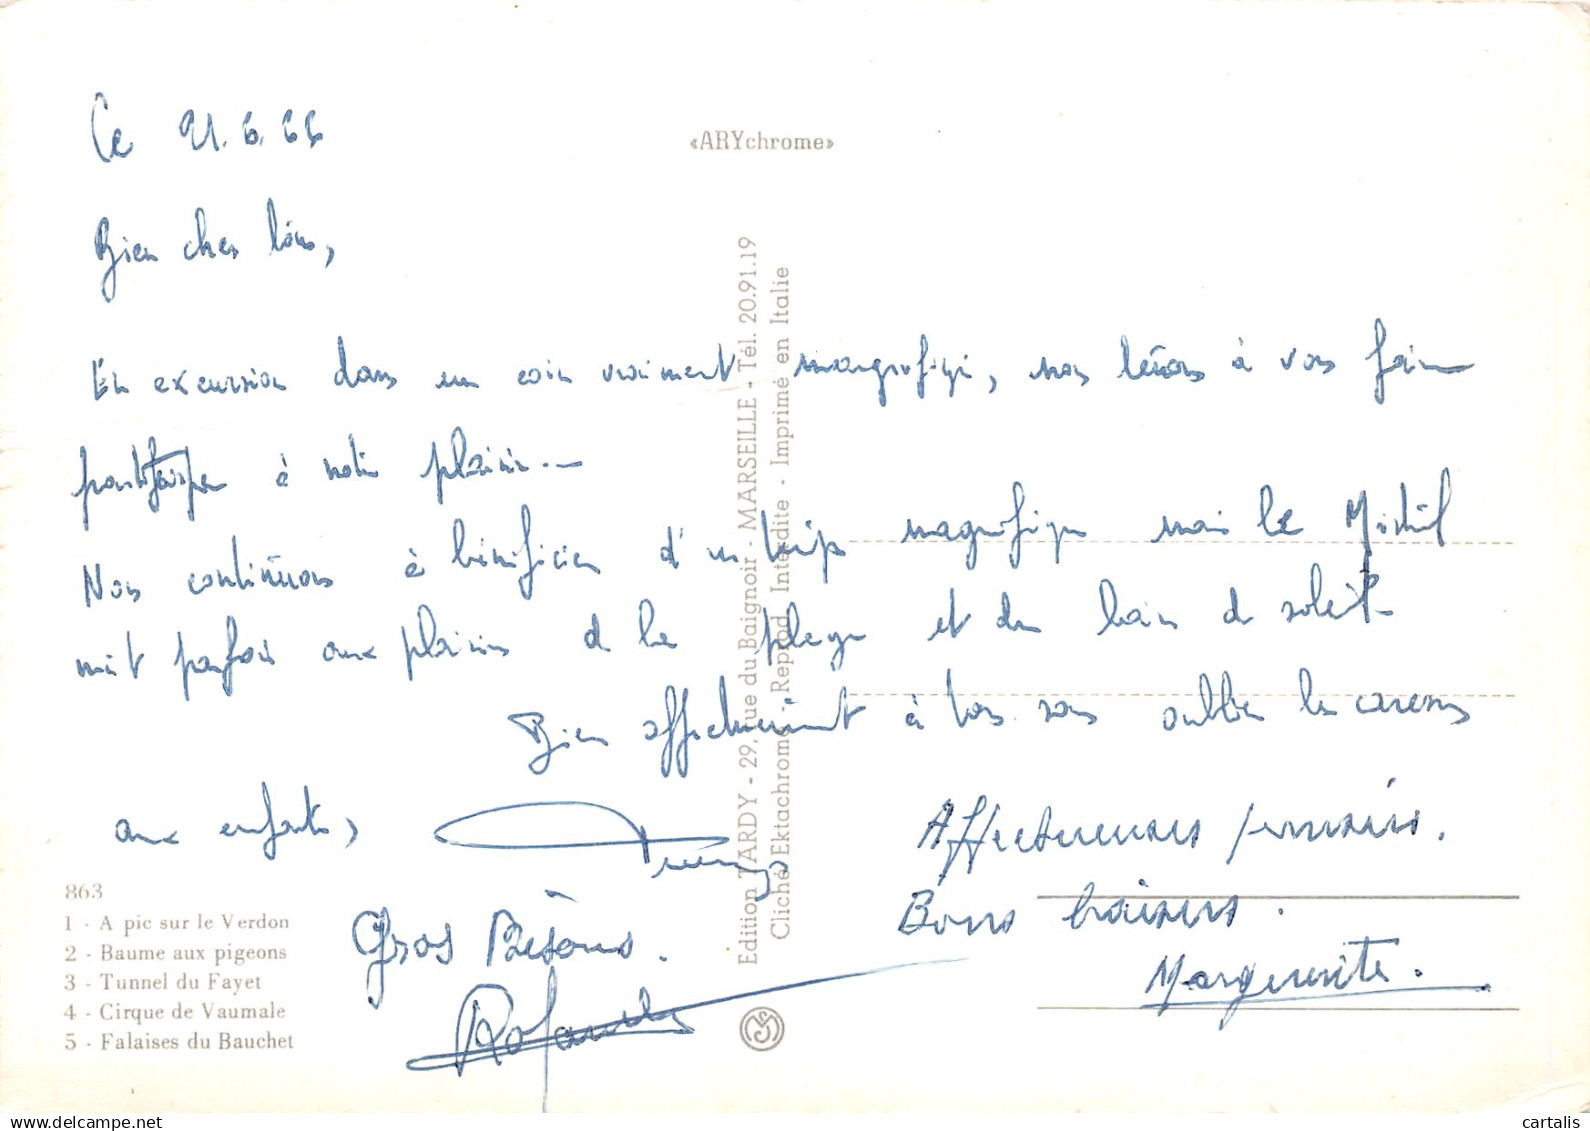 Ce 21.6.66
«ARYchrome»
Bien chers tous,
En excursion dans un coin vraiment magnifique, nous tenons à vous faire
participer à notre plaisir.
Nous continuons à bénéficier d'un temps magnifique mais le Mistral
nuit parfois aux plaisirs de la plage et du bain de soleil
Bien affectueusement à tous sans oublier les caresses
aux enfants,
Affectueuses pensées.
Gros Bisous.
Bons baisers.
Marguerite.
863
1 - A pic sur le Verdon
2 - Baume aux pigeons
3 - Tunnel du Fayet
4 - Cirque de Vaumale
5 - Falaises du Bauchet
Edition TARDY - 29, rue du Baignoir - MARSEILLE - Tél. 20.91.19
Cliché Ektachrome - Reprod. Interdite - Imprimé en Italie
delcampe.net
cartalis